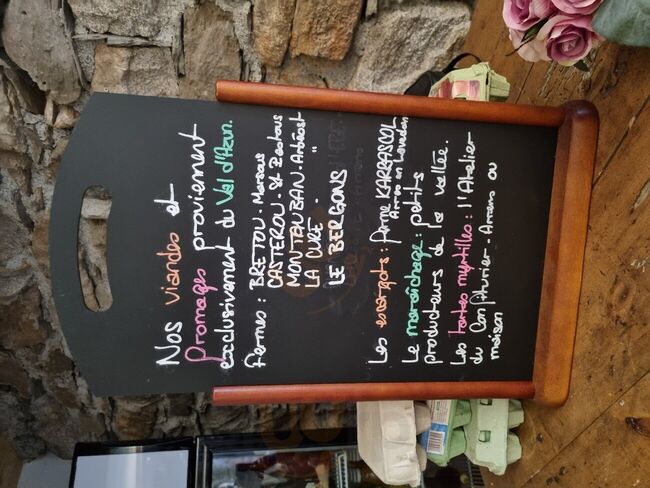 Nos viandes et
fromages proviement
exclusivement du Val d'Azun.
fermes : BRETOU - Marsous
CASTEROU - St Zacharie
MONTAUBAN - Arbéost
LA CURE - "
LE BERGONS
Les escargots : ferme KARGASCOL
Arras en Lavedan
Le maraîchage : petits
producteurs de la vallée.
Les tartes myrtilles : l'Atelier
du Confiturier - Arrens ou
maison